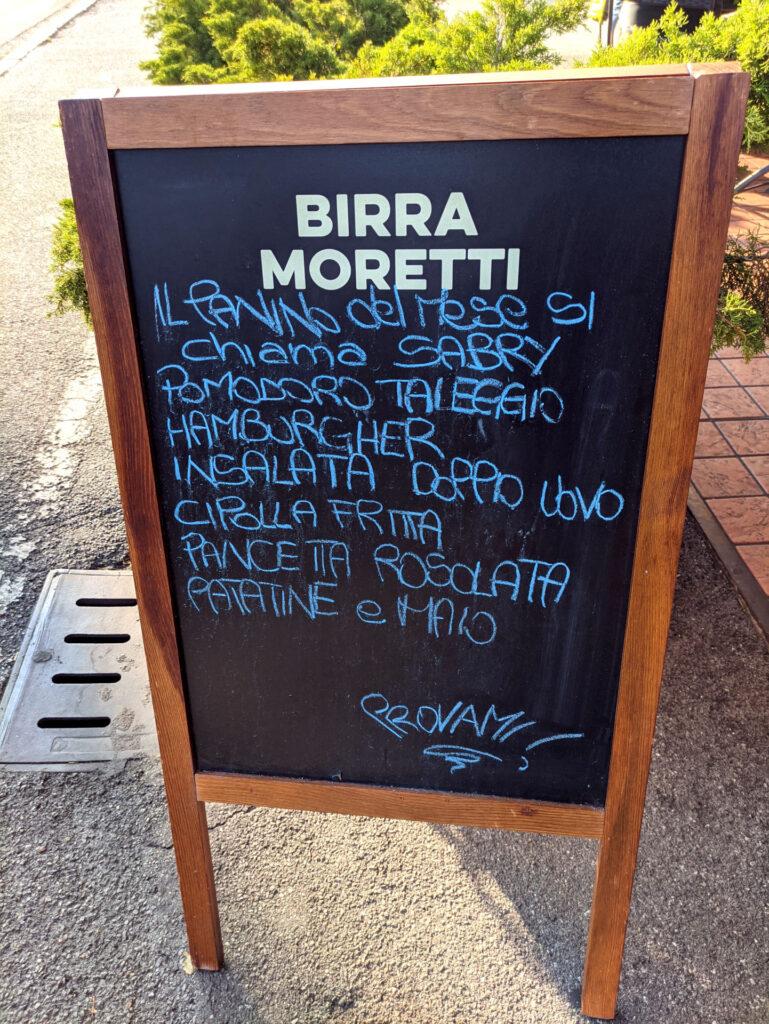 BIRRA
MORETTI
IL PANINO del Mese SI
chiama SABRY
POMODORO TALEGGIO
HAMBURGHER
INSALATA DOPPIO UOVO
CIPOLLA FRITTA
PANCETTA ROSOLATA
PATATINE e MAIO
PROVAMI